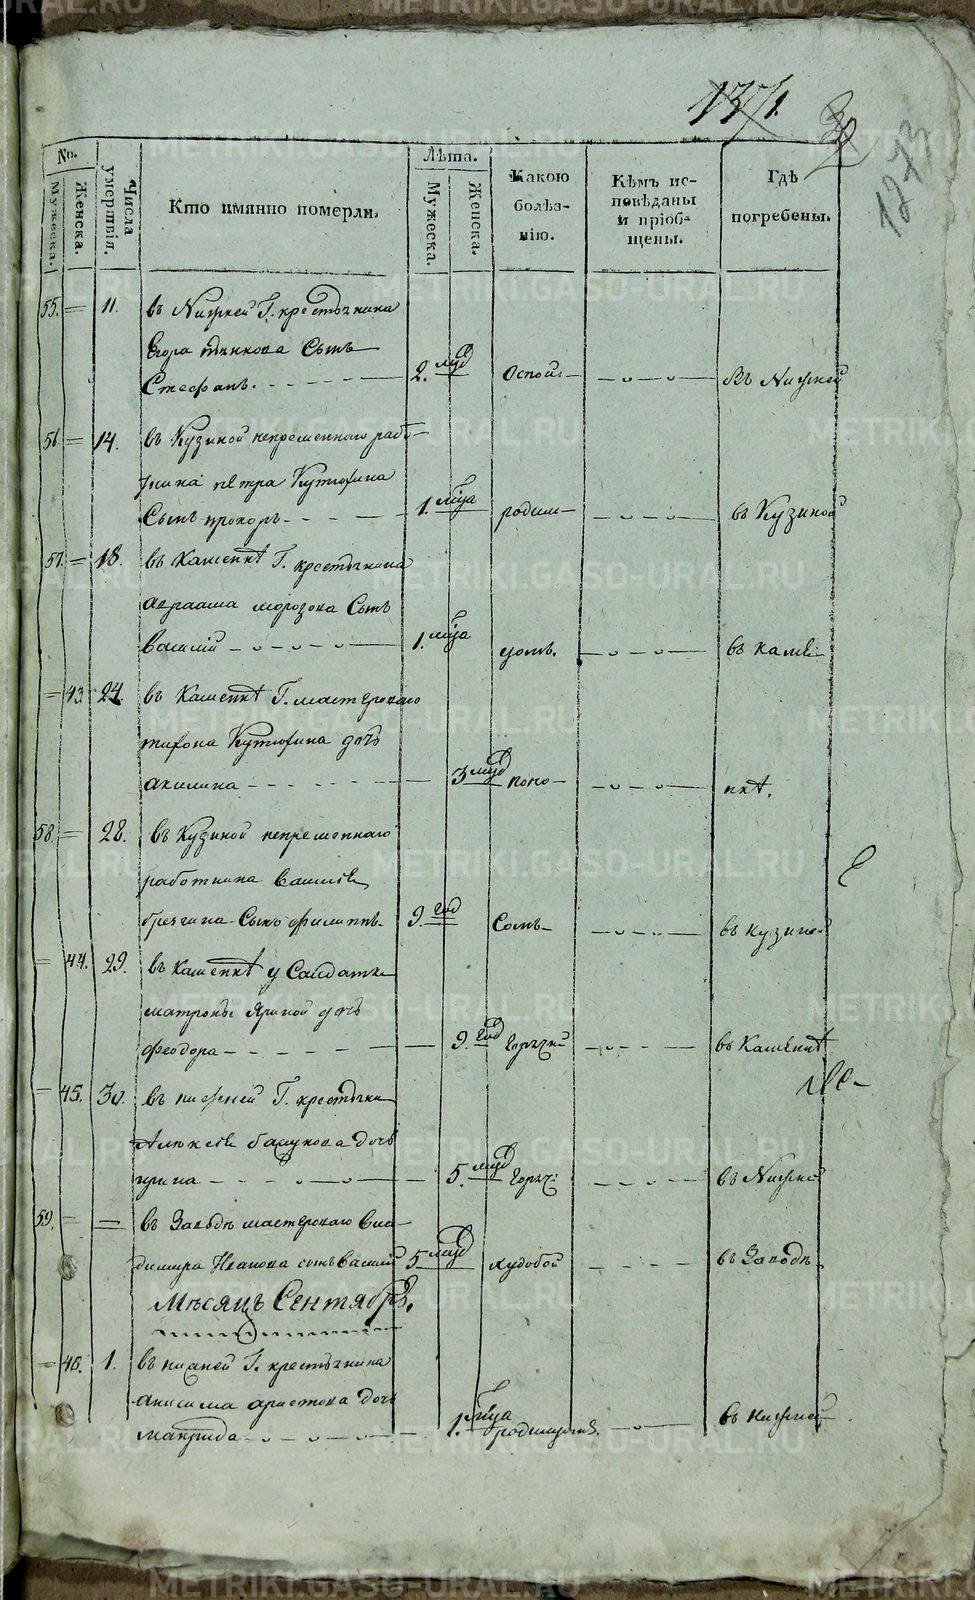 1371.
1273
No.
Мужеска.
Женска.
Числа умертвія.
Кто имянно померли.
Лѣта.
Мужеска.
Женска.
Какою болѣз-
нію.
Кѣмъ ис-
повѣданы
и пріоб-
щены.
Гдѣ
погребены.
55. 11. въ Нижней Г. крестьянина
Егора сынъ
Стефанъ. 2. Оспой въ Нижней
56 14. въ Кузиной непременнаго рабо-
тника петра Кутюхина
Сынъ прохоръ 1. мца родим въ Кузиной
57. 18. въ Каменкѣ Г. крестьянина
авраама морозова Сынъ
василій 1. мца въ Каме-
43 24. въ Каменкѣ Г. мастероваго
тихона Кутюхина дочь
акилина 3 поно- нкѣ.
58. 28. въ Кузиной непременнаго
работника василія
Сынъ филиппъ 9. год въ кузиной
44. 29. въ Каменкѣ у Салдатки
матроны дочь
феодора 9. год Горячкой въ Каменкѣ
45. 30. въ нижней Г. крестьяни
Алексія дочь
ирина 5. Горяч: въ Нижней
59. въ Заводѣ мастероваго Вла-
димира Иванова сынъ василій 5 худобой въ Заводѣ
Мѣсяцъ Сентябрь.
46. 1. въ нижней Г. крестьянина
анисима дочь
1. мца въ нижней
METRIKI.GASO-URAL.RU